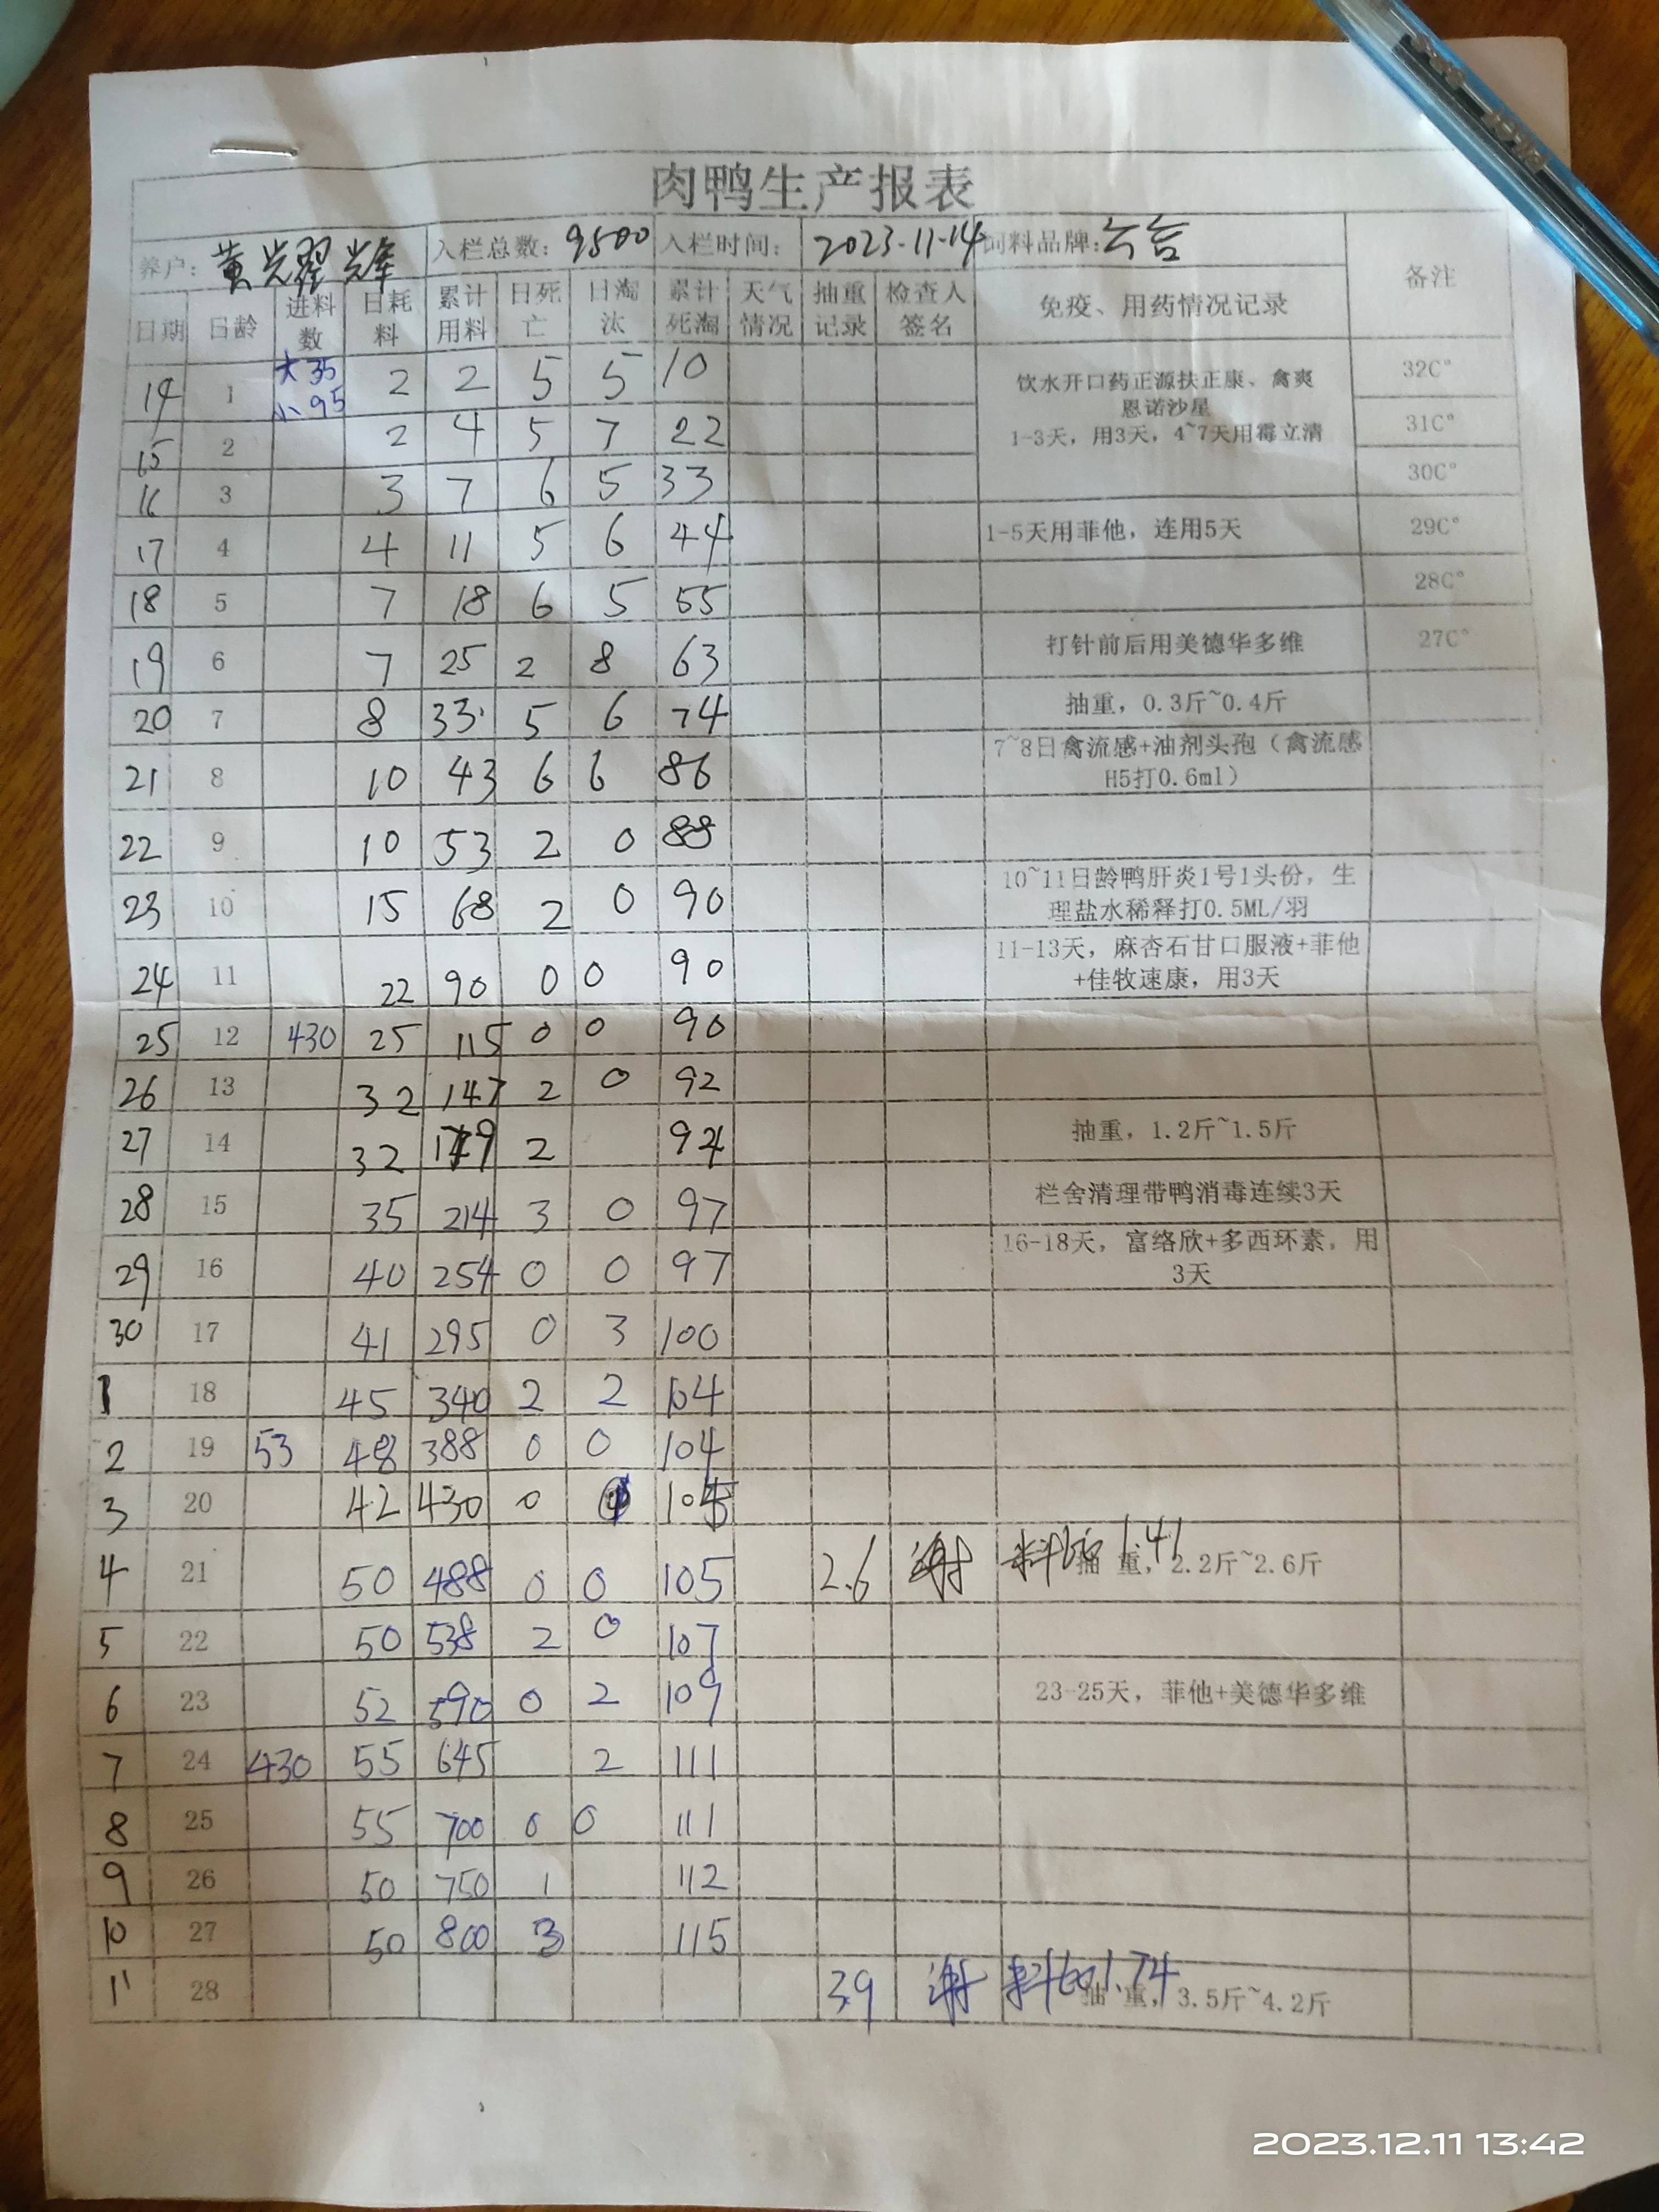 肉鸭生产报表
养户: 黄光耀辉 入栏总数: 9500 入栏时间: 2023-11-14 饲料品牌: 六合 备注
日期 日龄 进料数 日耗料 累计用料 日死亡 日淘汰 累计死淘 天气情况 抽重记录 检查人签名 免疫、用药情况记录
14 1 大35 小95 2 2 5 5 10 饮水开口药正源扶正康、禽爽 恩诺沙星 1-3天,用3天,4~7天用霉立清 32C°
15 2 2 4 5 7 22 31C°
16 3 3 7 6 5 33 30C°
17 4 4 11 5 6 44 1-5天用菲他,连用5天 29C°
18 5 7 18 6 5 55 28C°
19 6 7 25 2 8 63 打针前后用美德华多维 27C°
20 7 8 33 5 6 74 抽重,0.3斤~0.4斤
21 8 10 43 6 6 86 7~8日禽流感+油剂头孢(禽流感H5打0.6ml)
22 9 10 53 2 0 88
23 10 15 68 2 0 90 10~11日龄鸭肝炎1号1头份,生理盐水稀释打0.5ML/羽
24 11 22 90 0 0 90 11-13天,麻杏石甘口服液+菲他+佳牧速康,用3天
25 12 430 25 115 0 0 90
26 13 32 147 2 0 92
27 14 32 179 2 94 抽重,1.2斤~1.5斤
28 15 35 214 3 0 97 栏舍清理带鸭消毒连续3天
29 16 40 254 0 0 97 16-18天,富络欣+多西环素,用3天
30 17 41 295 0 3 100
1 18 45 340 2 2 104
2 19 53 48 388 0 0 104
3 20 42 430 0 1 105
4 21 50 488 0 0 105 2.6 谢 料比1.41 抽重,2.2斤~2.6斤
5 22 50 538 2 0 107
6 23 52 590 0 2 109 23-25天,菲他+美德华多维
7 24 430 55 645 2 111
8 25 55 700 0 0 111
9 26 50 750 1 112
10 27 50 800 3 115
11 28 3.9 谢 料比1.74 抽重,3.5斤~4.2斤
2023.12.11 13:42